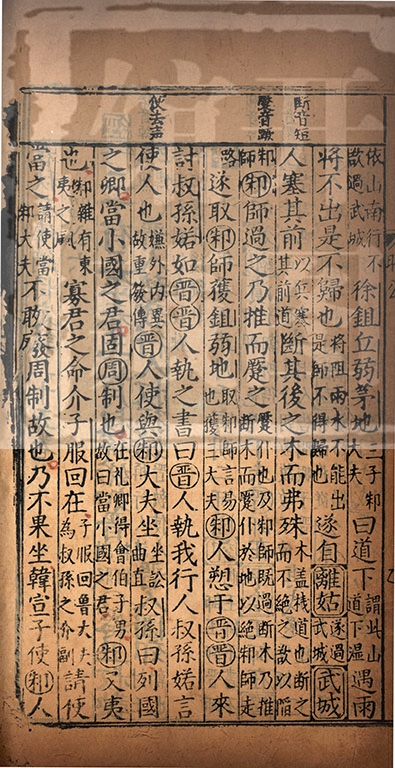 断音短
蹷音蹶
使去声
依山南行不欲過武城徐鉏丘弱茅地三子邾大夫曰道下謂此山道下湿遇雨
將不出是不歸也將阻雨水不能出是師不得歸也遂自離姑遂過武城武城
人塞其前以兵塞其前道斷其後之木而弗殊木盖栈道也断之而不絶之欲以陷
邾師邾師過之乃推而蹷之蹷仆也及邾師既過断木乃推断木而蹷仆於地以絶邾師走
路遂取邾師獲鉏弱地取邾師言易也獲三大夫邾人愬于晋晋人來
討叔孫婼如晋晋人執之書曰晋人執我行人叔孫婼言
使人也嫌外内異故重發傳晋人使與邾大夫坐坐訟曲直叔孫曰列國
之卿當小國之君固周制也在礼卿得會伯子男故曰當小國之君邾又夷
也邾雜有東夷之風寡君之命介子服回在子服回魯大夫為叔孫之介副請使
當之請使當邾大夫不敢廢周制故也乃不果坐韓宣子使邾人